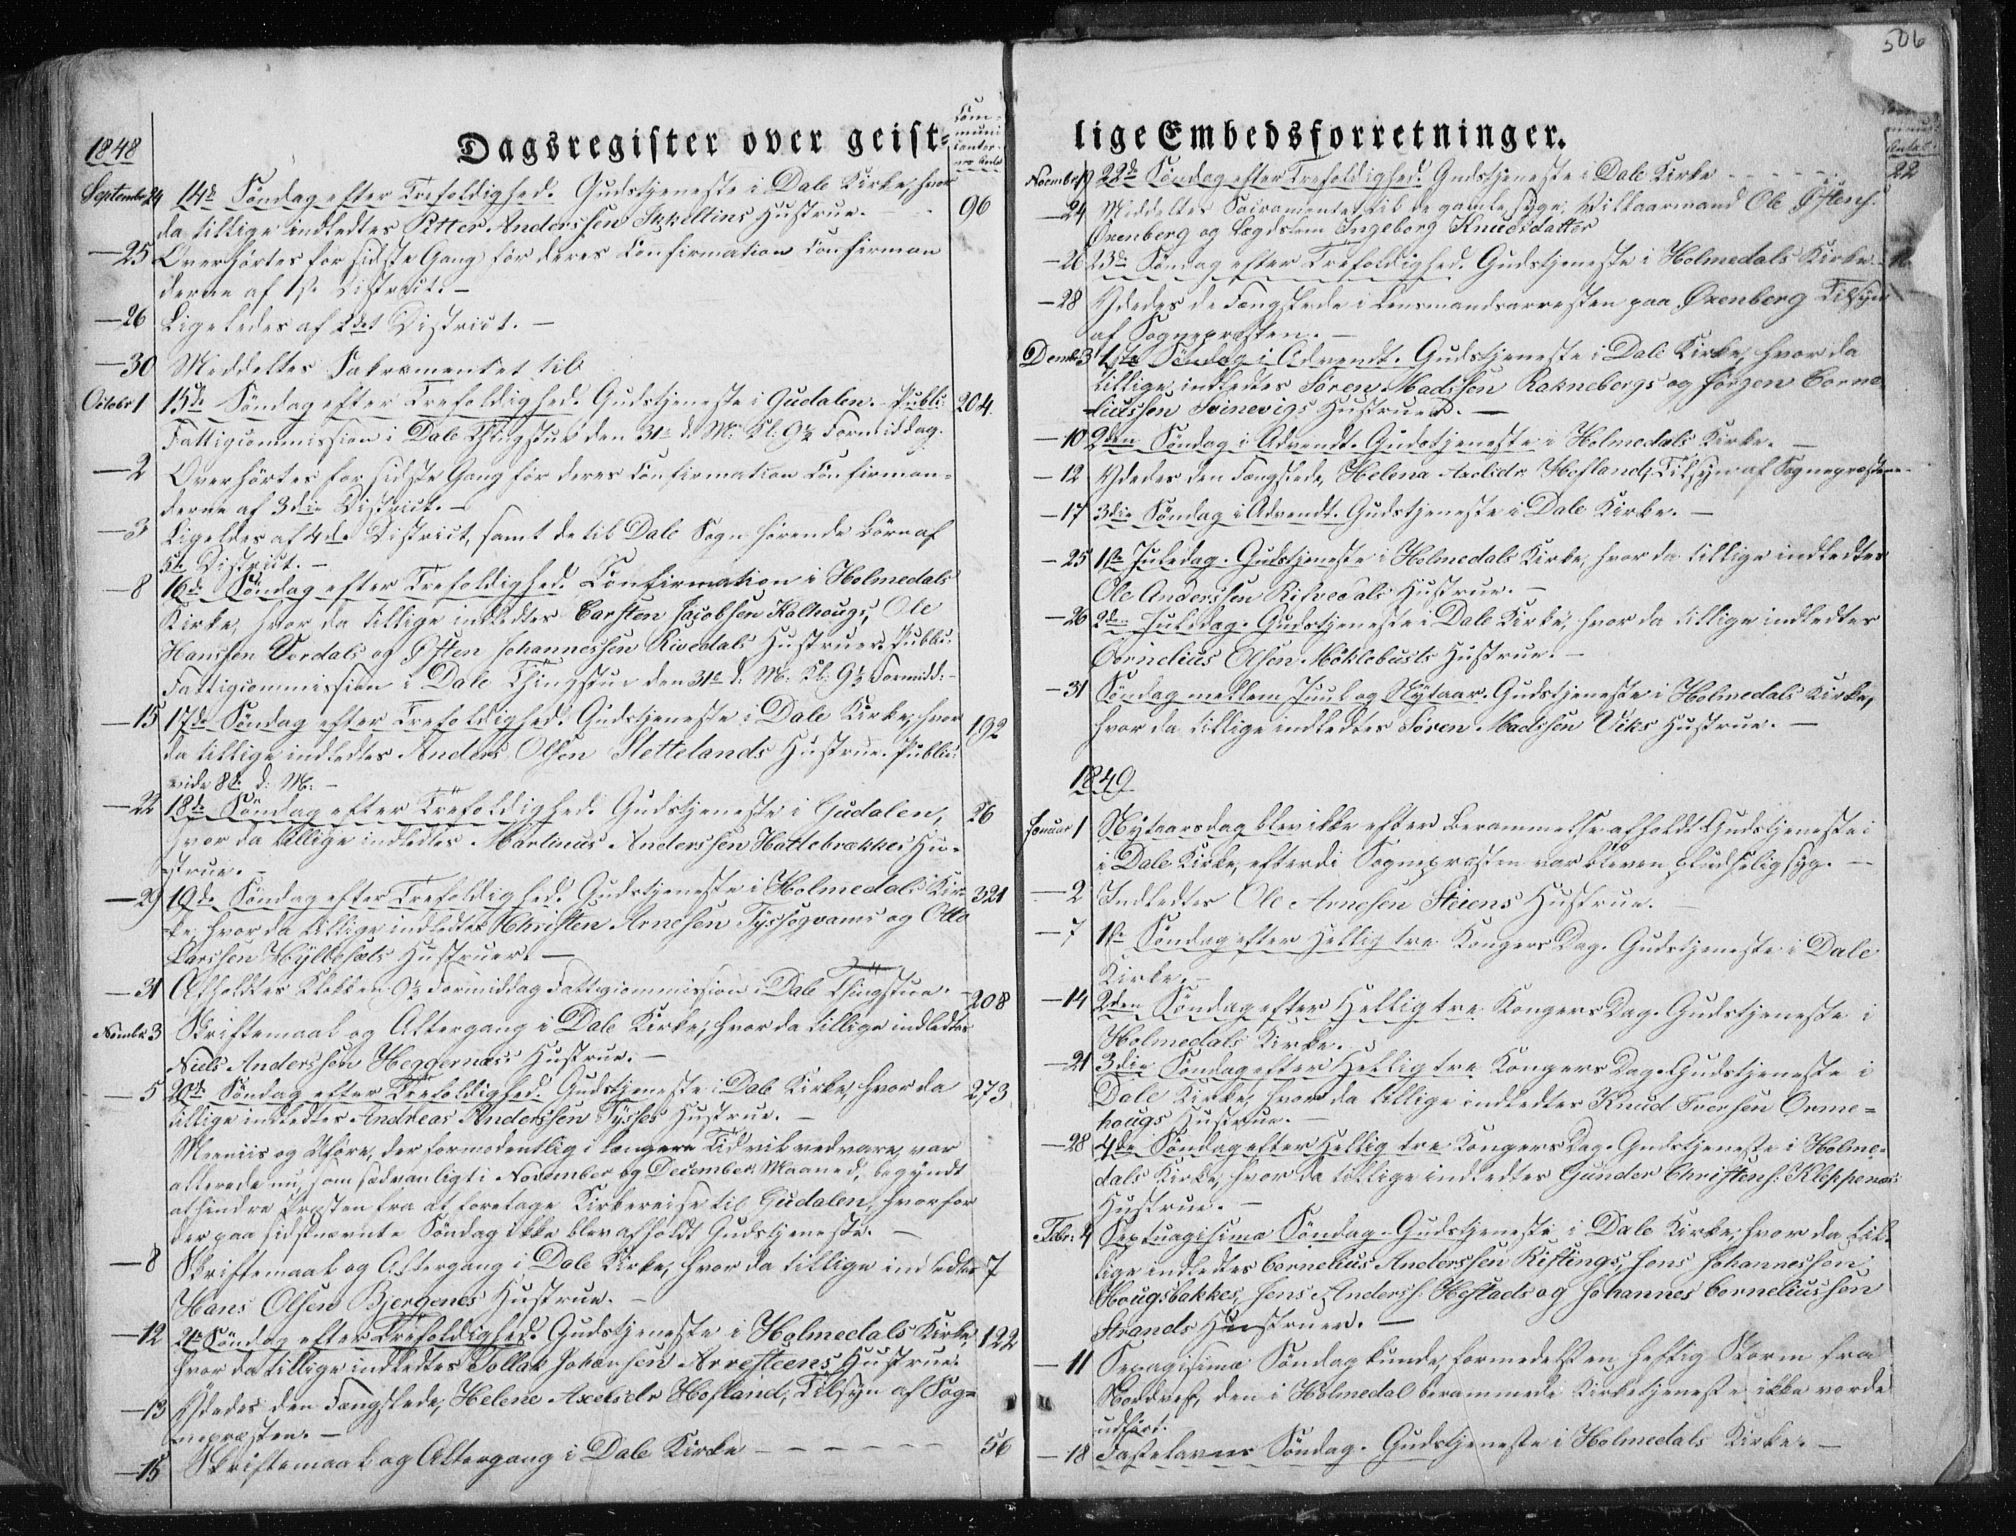 506
Dagsregister over geist-
lige Embedsforretninger.
1848
Communicanternes Antal
September 24 14de Søndag efter Trefoldighed. Gudstjeneste i Dale Kirke, hvor 96
da tillige indledtes Petter Anderssen Hustrue. -
- 25 Overhørtes for sidste Gang før deres Confirmation Confirman
derne af 1ste District. -
- 26 Ligeledes af 2det District. -
- 30 Meddeltes Sakramentet til
Octobr 1 15de Søndag efter Trefoldighed. Gudstjeneste i Gudalen. Publi: 204
Fattigcommission i Dale Thingstue den 31te d: M: Kl: 9½ Formiddag.
- 2 Overhørtes for sidste Gang før deres Confirmation Confirman-
derne af 3die District. -
- 3 Ligeledes af 4de District, samt de til Dale Sogn hørende Børn af
5te District. -
- 8 16de Søndag efter Trefoldighed. Confirmation i Holmedals
Kirke, hvor da tillige indledtes Carsten Jacobsen Kalhougs, Ole
Hanssen Vordals og Østen Johannessen Rivedals Hustruer. Publi:
Fattigcommission i Dale Thingstue den 31te d: M: Kl: 9½ Formidd: -
- 15 17de Søndag efter Trefoldighed. Gudstjeneste i Dale Kirke, hvor 192
da tillige indledtes Anders Olsen Slettelands Hustrue. Publi:
vide 8de d: M: -
- 22 18de Søndag efter Trefoldighed. Gudstjeneste i Gudalen, 26
hvor da tillige indledtes Martinus Anderssen Hatlebrækkes Hu-
strue. -
- 29 19de Søndag efter Trefoldighed. Gudstjeneste i Holmedals Kir- 321
ke, hvor da tillige indledtes Christen Arnesen Tyssegvams og Otto
Larssen Hyllesæts Hustruer. -
- 31 Afholdtes Klokken 9½ Formiddag Fattigcommission i Dale Thingstue. -
Novmbr 3 Skriftemaal og Altergang i Dale Kirke, hvor da tillige indledtes 208
Niels Anderssen Heggernæs Hustrue. -
- 5 20de Søndag efter Trefoldighed. Gudstjeneste i Dale Kirke, hvor da 273
tillige indledtes Andreas Anderssen Tysses Hustrue. -
Meeniis og Uføre, der formodentlig i længere Tid vil vedvare, var
allerede nu, som sædvanligt i November og December Maaned, begyndt
at hindre Præsten fra at foretage Kirkereise til Gudalen, hvorfor
der paa sidstnævnte Søndag ikke blev afholdt Gudstjeneste. -
- 8 Skriftemaal og Altergang i Dale Kirke, hvor da tillige indledtes 7
Hans Olsen Bjergenes Hustrue. -
- 12 21de Søndag efter Trefoldighed. Gudstjeneste i Holmedals Kirke, 122
hvor da tillige indledtes Tollak Johansen Arnesteens Hustrue.
- 13 Ydedes den Fængslede, Helene Axelsdr Hofland, Tilsyn af Sog-
nepræsten. -
- 15 Skriftemaal og Altergang i Dale Kirke - - - - - - 56
Novmber 19 22de Søndag efter Trefoldighed. Gudstjeneste i Dale Kirke - - - - - 22
- 24 Meddeltes Sacramentet til de gamle, syge, Vilkaarmand Ole Østens:
Oxenberg og Lægdslem Ingeborg Knudsdatter
- 26 23de Søndag efter Trefoldighed. Gudstjeneste i Holmedals Kirke
- 28 Ydedes de Fængslede i Lensmandsarresten paa Oxenberg Tilsyn
af Sognepræsten. -
Decmbr 3 1ste Søndag i Advendt. Gudstjeneste i Dale Kirke, hvor da
tillige indledtes Søren Madssen Raknebergs og Jørgen Corne-
liussen Svinevigs Hustruer. -
- 10 2den Søndag i Advendt. Gudstjeneste i Holmedals Kirke. -
- 12 Ydedes den Fængslede, Helena Axelsdr Hofland, Tilsyn af Sognepræsten. -
- 17 3die Søndag i Advendt. Gudstjeneste i Dale Kirke. -
- 25 1ste Juledag. Gudstjeneste i Holmedals Kirke, hvor da tillige indledtes
Ole Anderssen Ritvedals Hustrue. -
- 26 2den Juledag. Gudstjeneste i Dale Kirke, hvor da tillige indledtes
Cornelius Olsen Møklebusts Hustrue. -
- 31 Søndag mellem Juul og Nytaar. Gudstjeneste i Holmedals Kirke,
hvor da tillige indledtes Søren Madssen Viks Hustrue. -
1849
Januar 1 Nytaarsdag blev ikke efter Berammelse afholdt Gudstjeneste i
i Dale Kirke, efterdi Sognepræsten var bleven pludselig syg. -
- 2 Indledtes Ole Arnesen Steiens Hustrue. -
- 7 1ste Søndag efter Hellig tre Kongers Dag. Gudstjeneste i Dale
Kirke. -
- 14 2den Søndag efter Hellig tre Kongers Dag. Gudstjeneste i
Holmedals Kirke. -
- 21 3die Søndag efter Hellig tre Kongers Dag. Gudstjeneste i
Dale Kirke, hvor da tillige indledtes Knud Iversen Orme-
hougs Hustrue. -
- 28 4de Søndag efter Hellig tre Kongers Dag. Gudstjeneste i Holme-
dals Kirke, hvor da tillige indledtes Gunder Christens: Kleppenæs:
Hustrue. -
Febr: 4 Septuagisima Søndag. Gudstjeneste i Dale Kirke, hvor da til-
lige indledtes Cornelius Anderssen Kistings, Jens Johannessen
Hougsbakkes, Jens Anders: Hestads og Johannes Corneliussen
Strands Hustruer. -
- 11 Sexagisima Søndag kunde, formedelst en heftig Storm fra
Nordvest, den i Holmedal berammede Kirketjeneste ikke vorde
udført.
- 18 Fastelavns Søndag. Gudstjeneste i Holmedals Kirke. -